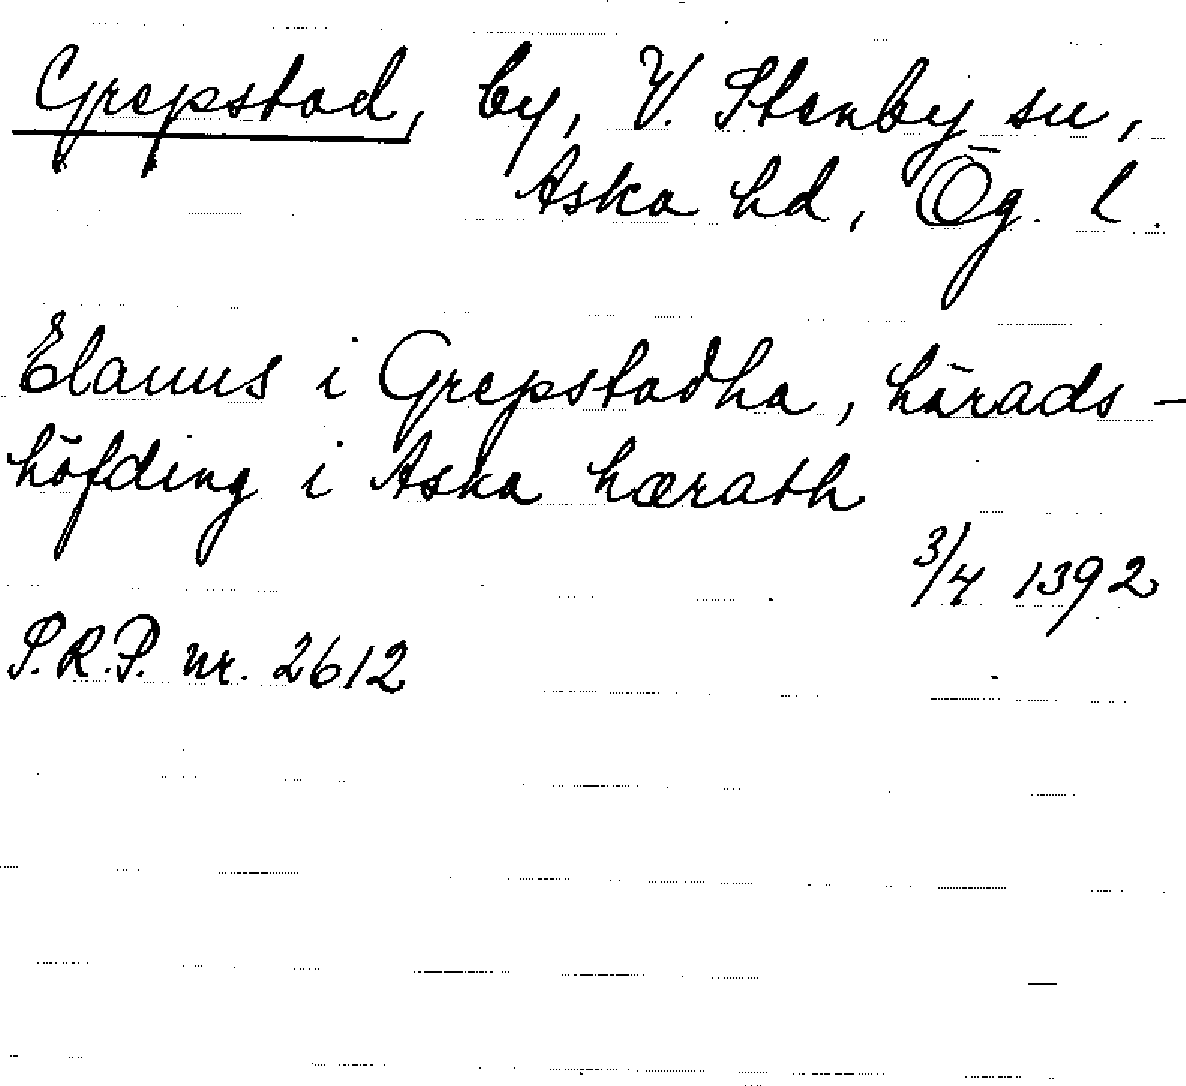 Grepstad, by, V. Stenby sn,
Aska hd, Ög. l.
Elauus i Grepstadha, härads-
höfding i Aska hærath
3/4 1392
P.R.P. nr. 2612